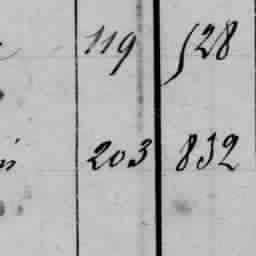 119 528
203 832